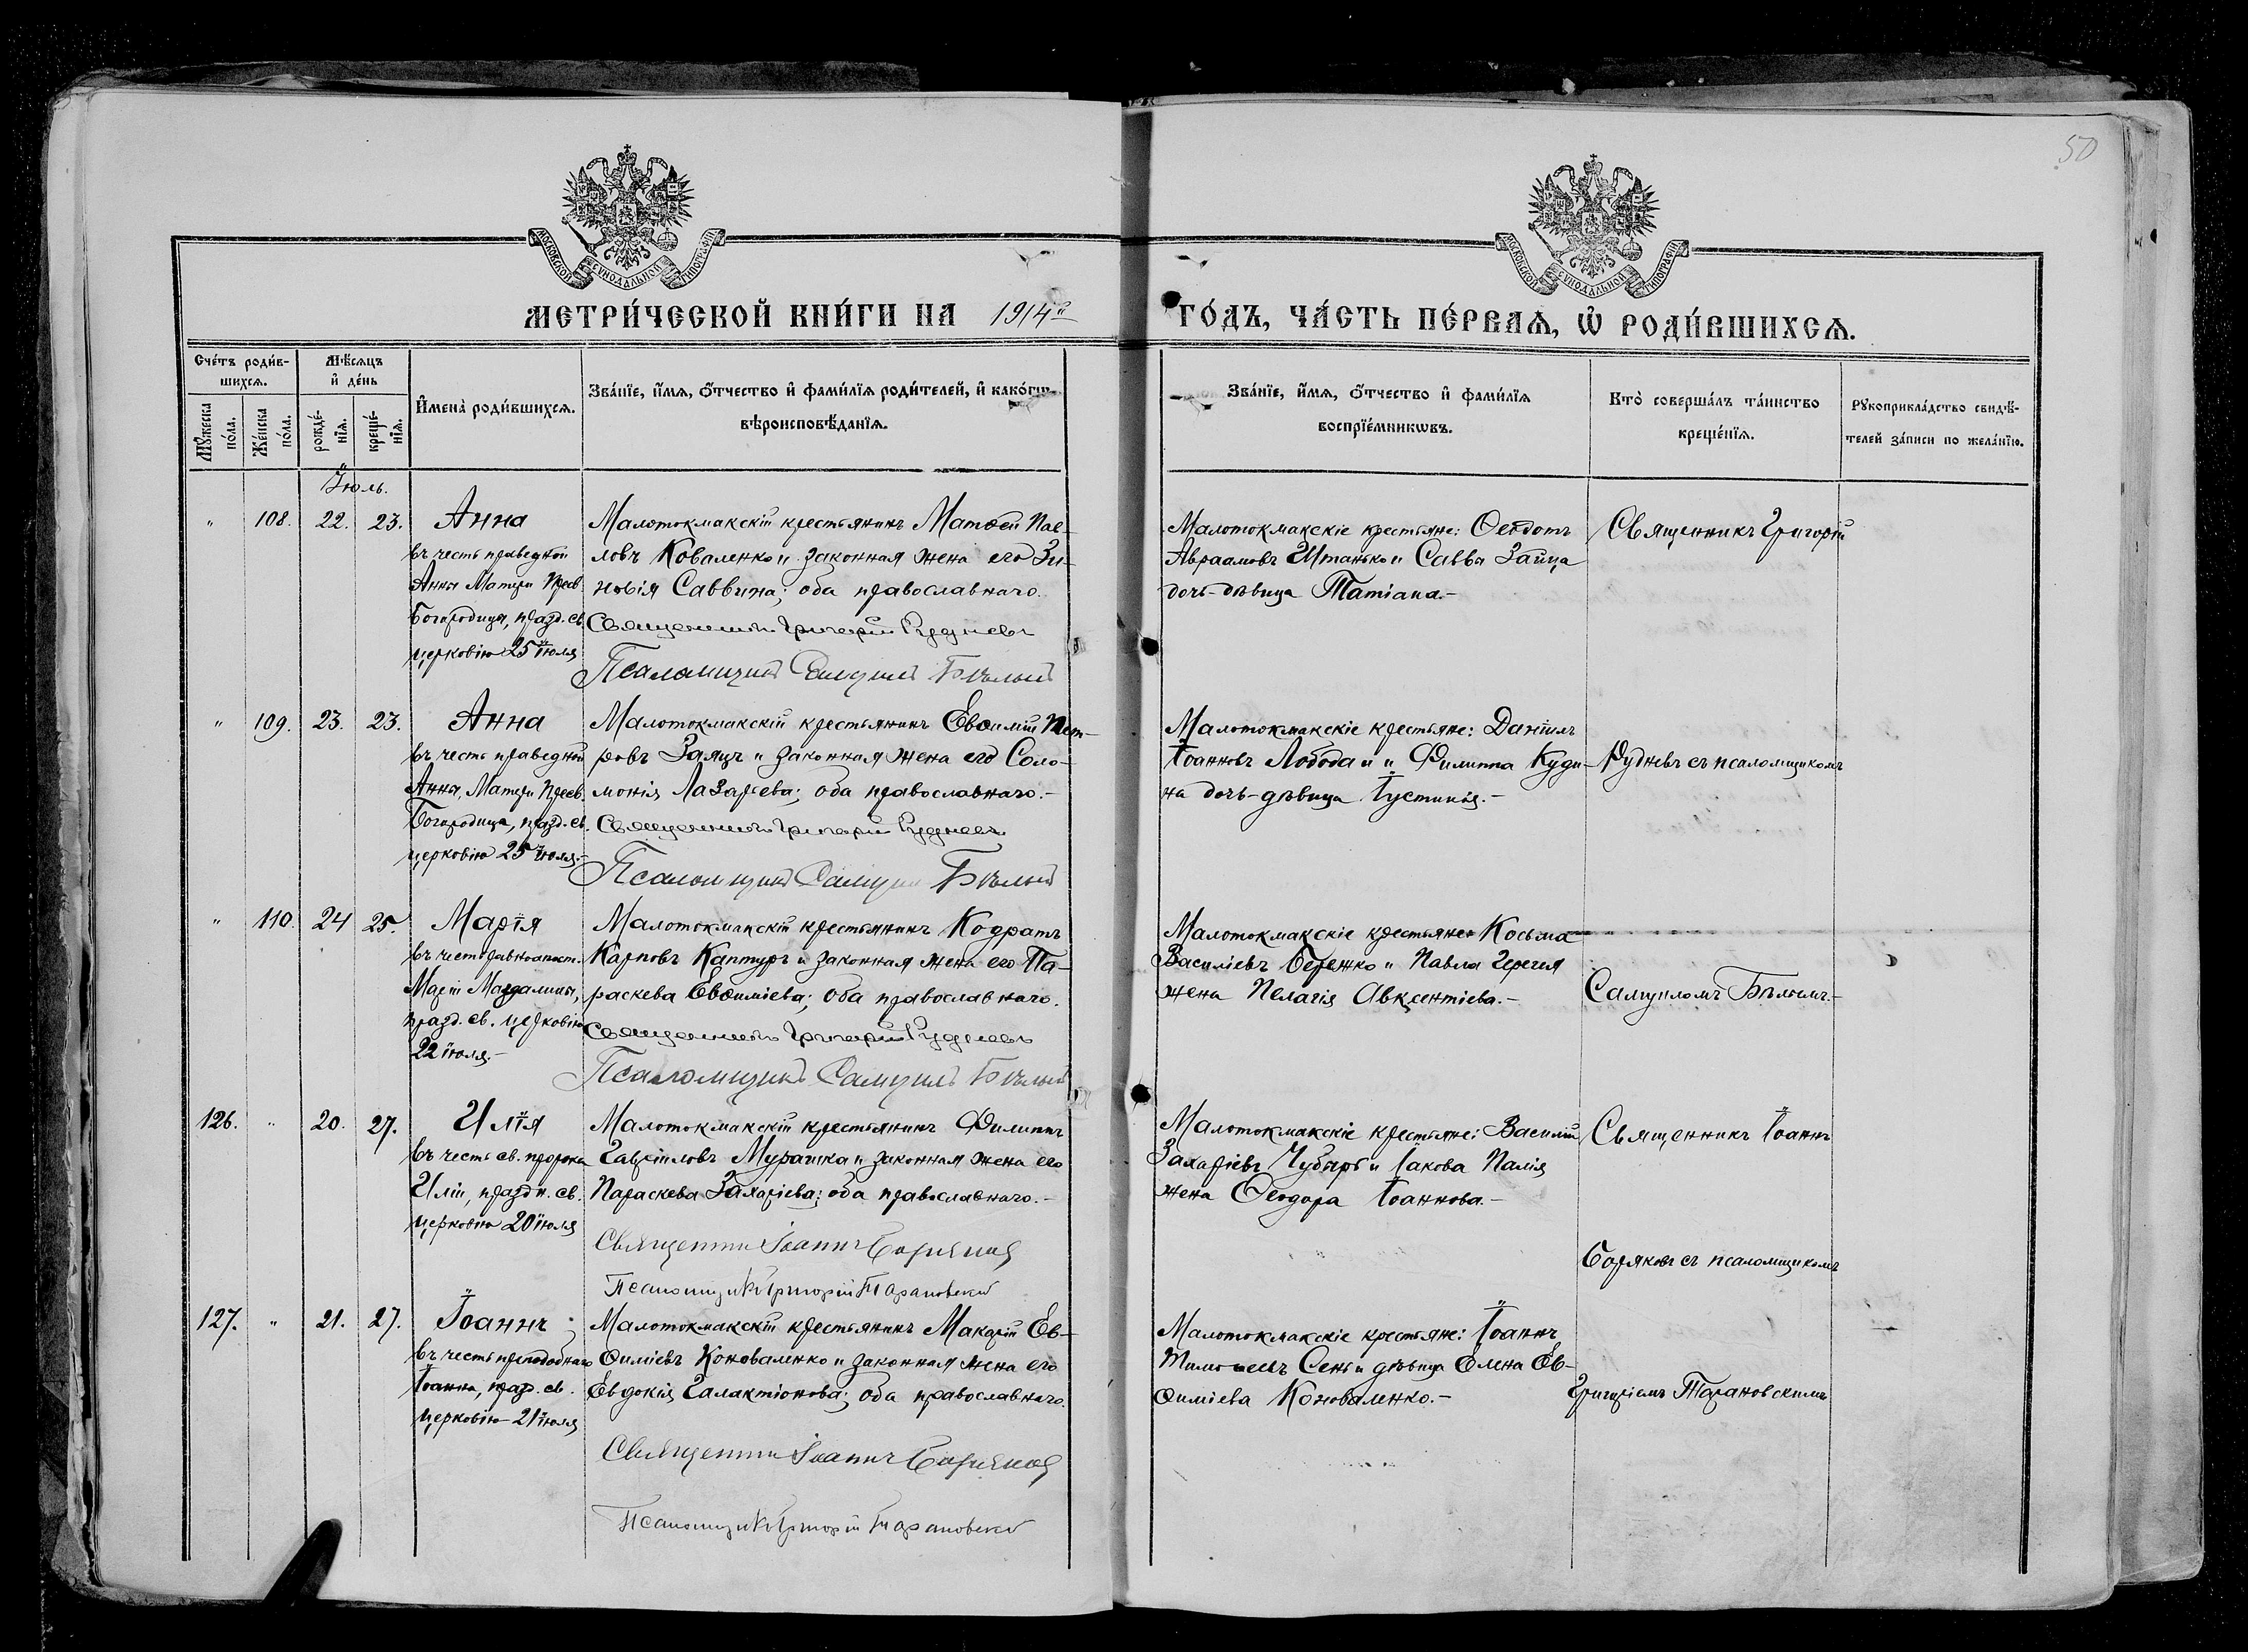 50
МОСКОВСКОЙ СУНОДАЛЬНОЙ ТИПОГРАФІИ
МОСКОВСКОЙ СУНОДАЛЬНОЙ ТИПОГРАФІИ
МЕТРИ́ЧЕСКОЙ КНИ́ГИ НА 1914й ГО́ДЪ, ЧА́СТЬ ПЕ́РВАЯ, Ѡ РОДИ́ВШИХСЯ.
Сче́тъ роди́в-
шихся.
Мꙋжеска
по́ла.
Же́нска
по́ла.
Мѣ́сяцъ
и де́нь
рожде́-
нїя.
креще́-
нїя.
Имена̀ роди́вшихся.
Зва́нїе, и́мя, о́тчество и фами́лїя роди́телей, и како́гѡ
вѣроисповѣ́данїя.
Зва́нїе, и́мя, о́тчество и фами́лїя
воспрїе́мникѡвъ.
Кто̀ соверша́лъ та́инство
креще́нїя.
Рꙋкоприкла́дство свидѣ́-
телей за́писи по жела́нїю.
Іюль.
" 108. 22. 23.
Анна
въ честь праведной
Анны Матери Пресв.
Богородицы, празд. св.
церковію 25 іюля
Малотокмакскій крестьянинъ Матѳей Пав-
ловъ Коваленко и законная жена его Зи-
новія Саввина; оба православнаго.
Священникъ Григорій Рудневъ
Псаломщикъ Самуилъ Бѣлый
Малотокмакскіе крестьяне: Ѳеодотъ
Авраамовъ Штанько и Саввы Зайца
дочь-дѣвица Татіана.-
Священникъ Григорій
" 109. 23. 23.
Анна
въ честь праведной
Анны, Матери Пресв.
Богородицы, празд. св.
церковію 25 іюля.-
Малотокмакскій крестьянинъ Евѳимій Пет-
ровъ Заяцъ и законная жена его Соло-
монія Лазарева; оба православнаго.-
Священникъ Григорій Рудневъ
Псаломщикъ Самуилъ Бѣлый
Малотокмакскіе крестьяне: Даніилъ
Іоанновъ Лобода и и Филиппа Куди-
на дочь-дѣвица Іустинія.-
Рудневъ съ псаломщикомъ
" 110. 24 25.
Марія
въ честь равноапост.
Маріи Магдалины,
празд. св. церковію
22 іюля.-
Малотокмакскій крестьянинъ Кодратъ
Карповъ Каптуръ и законная жена его Па-
раскева Евѳиміева; оба православнаго.
Священникъ Григорій Рудневъ
Псаломщикъ Самуилъ Бѣлый
Малотокмакскіе крестьяне: Косьма
Василіевъ Бережко и Павла
жена Пелагія Авксентіева.-
Самуиломъ Бѣлымъ.-
126. " 20. 27.
Илія
въ честь св. пророка
Иліи, праздн. св.
церковію 20 іюля
Малотокмакскій крестьянинъ Филиппъ
Гавріиловъ Мурашка и законная жена его
Параскева Захаріева; оба православнаго.-
Священникъ Іоаннъ Боряковъ
Псаломщикъ Григорій Тарановскій
Малотокмакскіе крестьяне: Василій
Захаріевъ Чубарь и Іакова Палія
жена Ѳеодора Іоаннова.-
Священникъ Іоаннъ
Боряковъ съ псаломщикомъ
127. " 21. 27.
Іоаннъ
въ честь преподобнаго
Іоанна, празд. св.
церковію 21 іюля
Малотокмакскій крестьянинъ Макарій Ев-
ѳиміевъ Коноваленко и законная жена его
Евдокія Галактіонова; оба православнаго.
Священникъ Іоаннъ Боряковъ
Псаломщикъ Григорій Тарановскій
Малотокмакскіе крестьяне: Іоаннъ
Сень и дѣвица Елена Ев-
ѳиміева Коноваленко.-
Григоріемъ Тарановскимъ